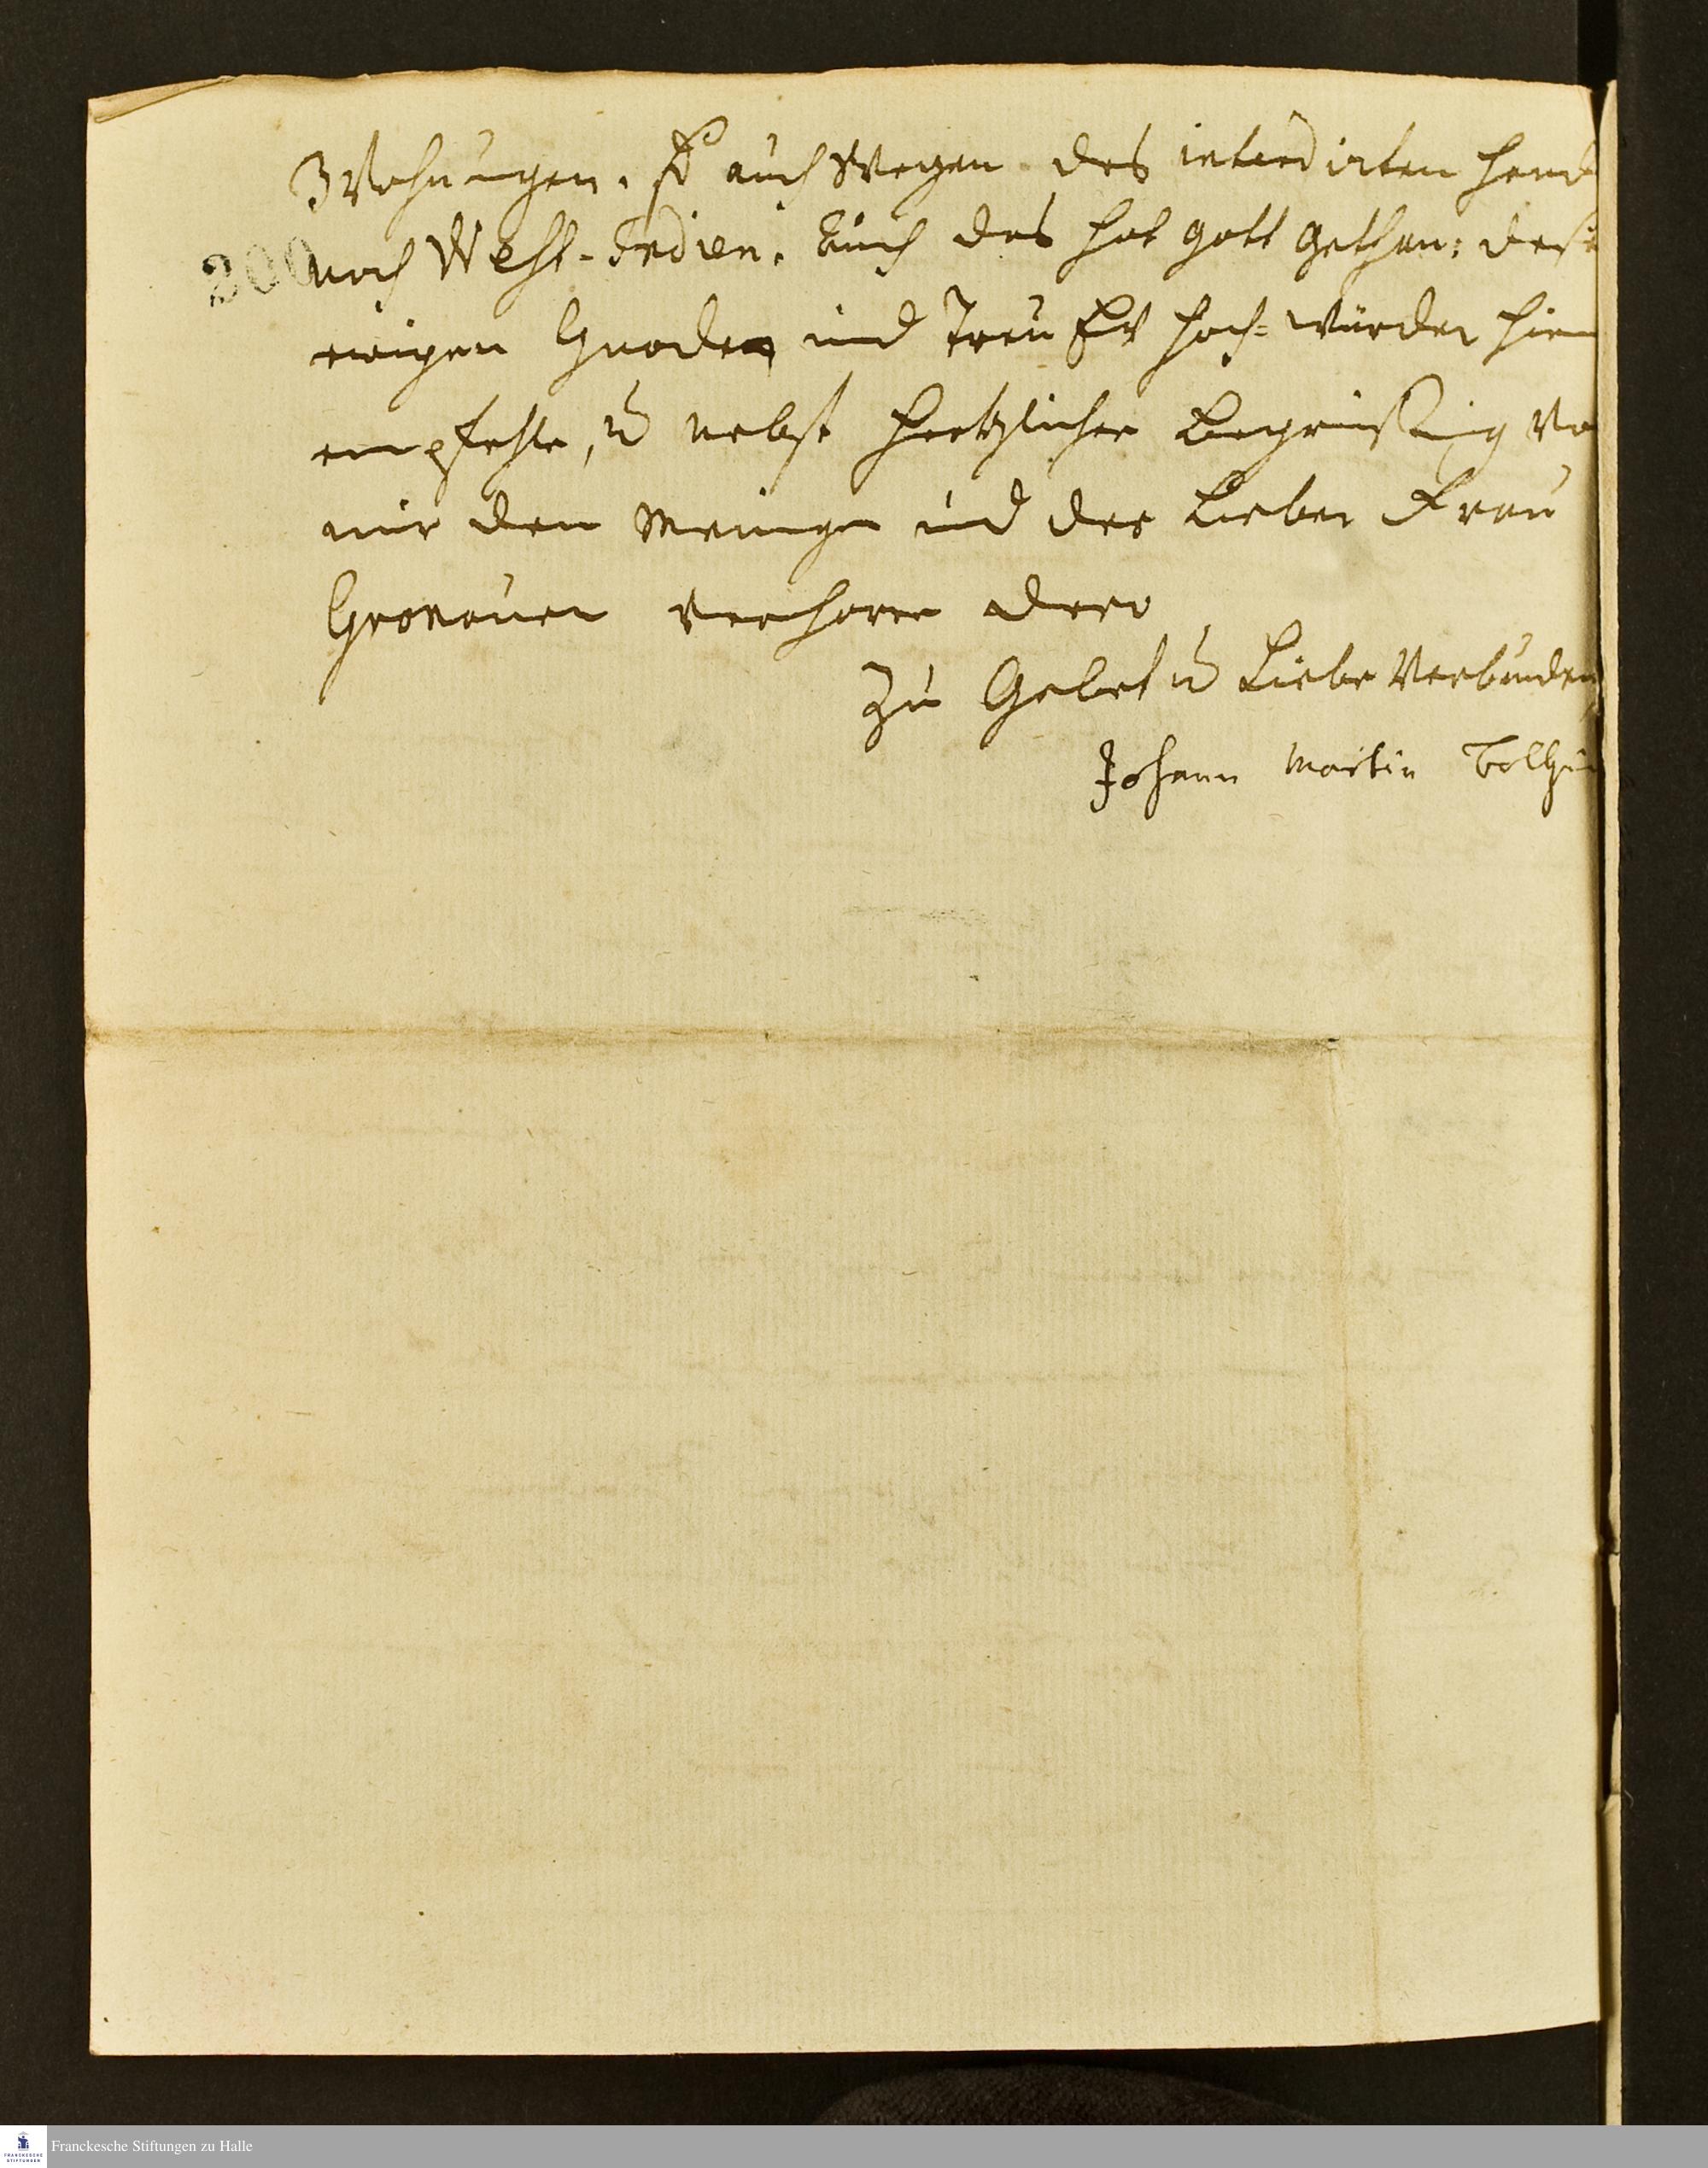 3 Wohnungen. So auch Wegen des interdicirten Hand
200
nach West-Indien. Auch das hat Gott gethan: deßen
ewigen Gnaden und Treu Ew Hoch-würden hiem
empfehle, u nebst Hertzlicher Begrüßung Vo
mir den Meinigen und der Lieben Frau
Gronauen verharre dero
Zu Gebet u Liebe Verbunden
Johann Martin Boltziu
Franckesche Stiftungen zu Halle
FRANCKESCHE
STIFTUNGEN